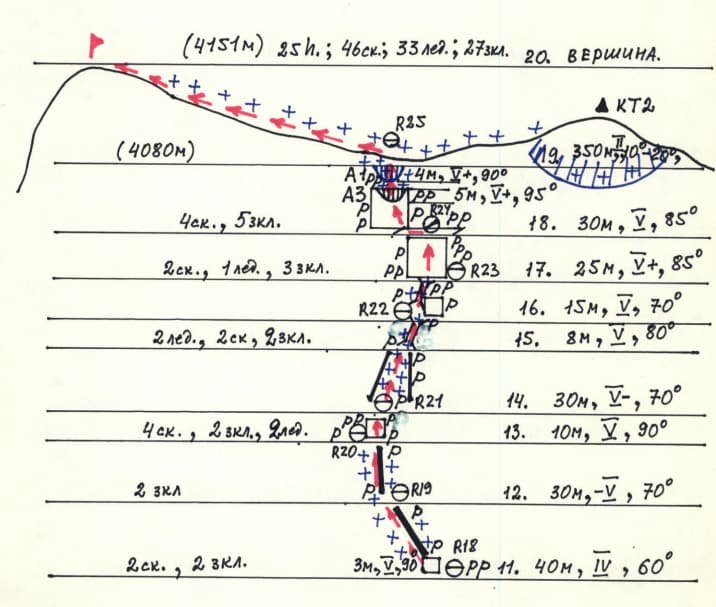 (4151м) 25h.; 46ск.; 33лед.; 27зкл. 20. ВЕРШИНА.
КТ2
R25
(4080м) 19. 350м, II, 10°-20°,
А1 рр 4м, V+, 90°
А3 рр 5м, V+, 95°
р R24 рр
4ск., 5зкл. р 18. 30м, V, 85°
р р рр
2ск., 1лед., 3зкл. рр R23 17. 25м, V+, 85°
р рр
R22 р 16. 15м, V, 70°
р
2лед., 2ск, 2зкл. р 15. 8м, V, 80°
р р
р
р R21 14. 30м, V-, 70°
рр р
4ск., 2зкл., 2лед. р р 13. 10м, V, 90°
R20 р
2 зкл р R19 12. 30м, -V, 70°
р
р R18
2ск., 2 зкл. 3м, V, 90° рр 11. 40м, IV, 60°